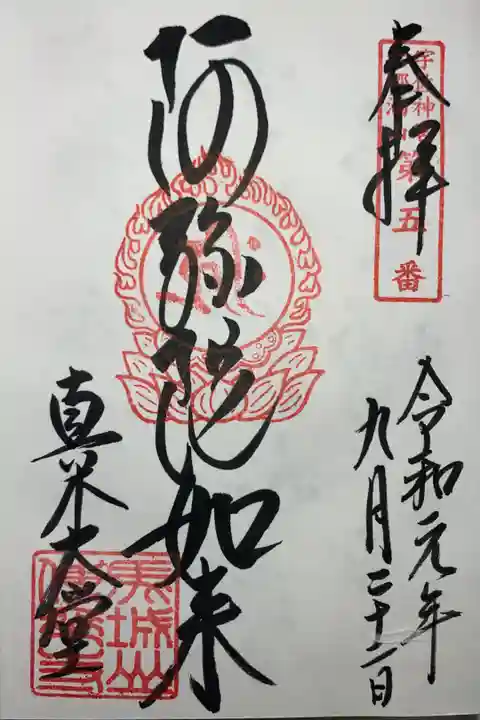 奉拝
第五番
令和元年
九月二十二日
阿弥陀如来
真木大堂